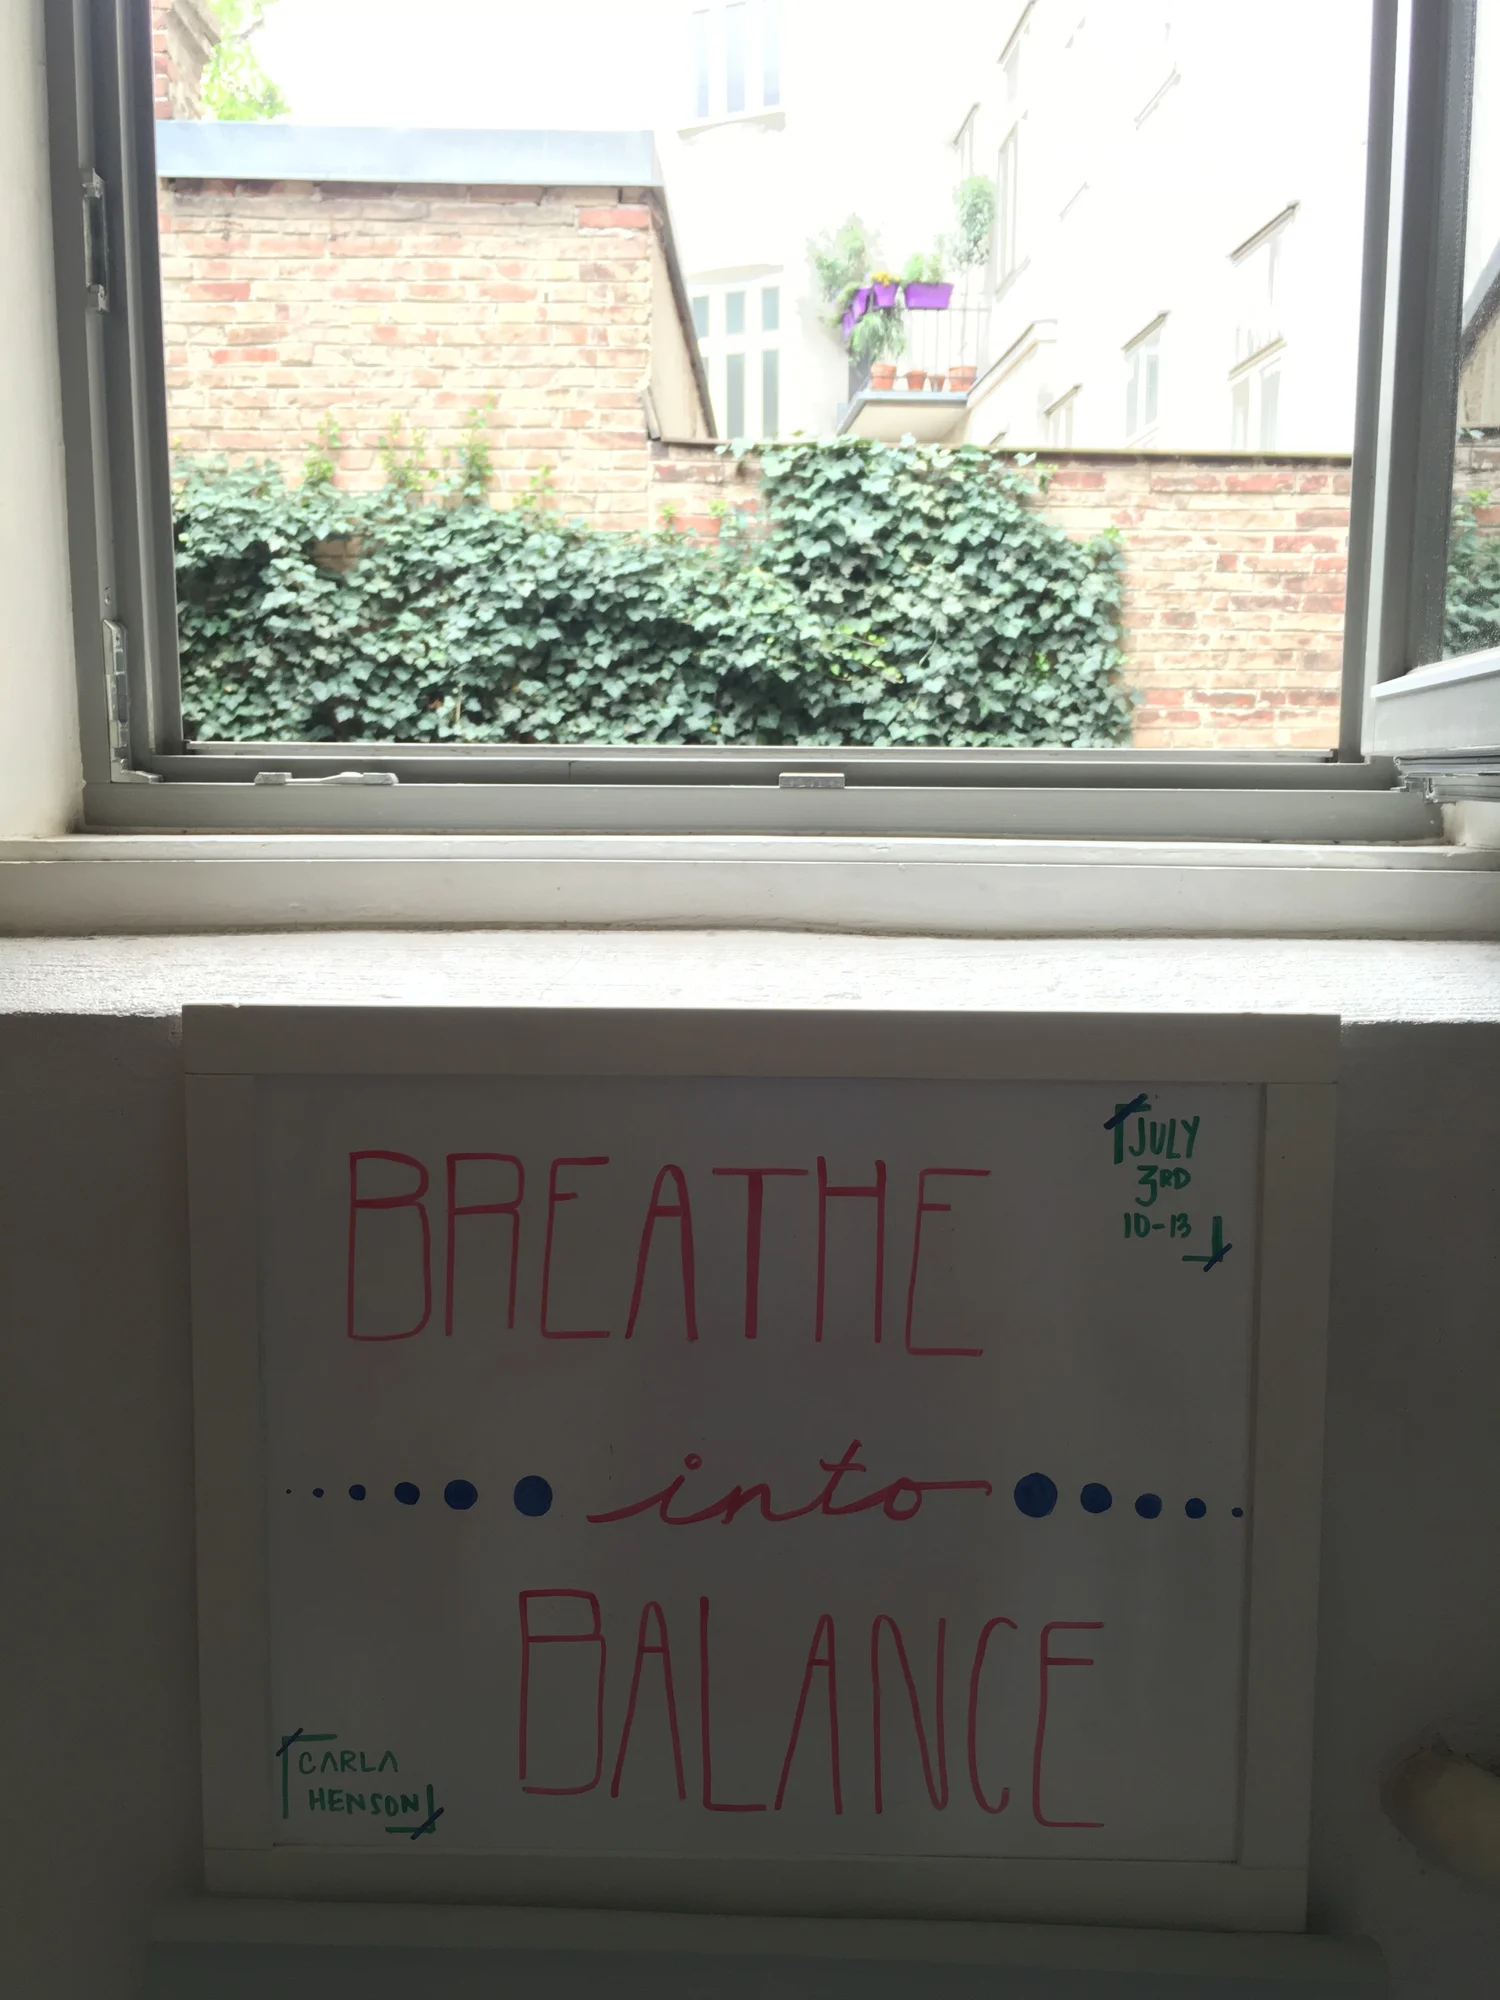 BREATHE
JULY
3RD
10-13
into
BALANCE
CARLA
HENSON